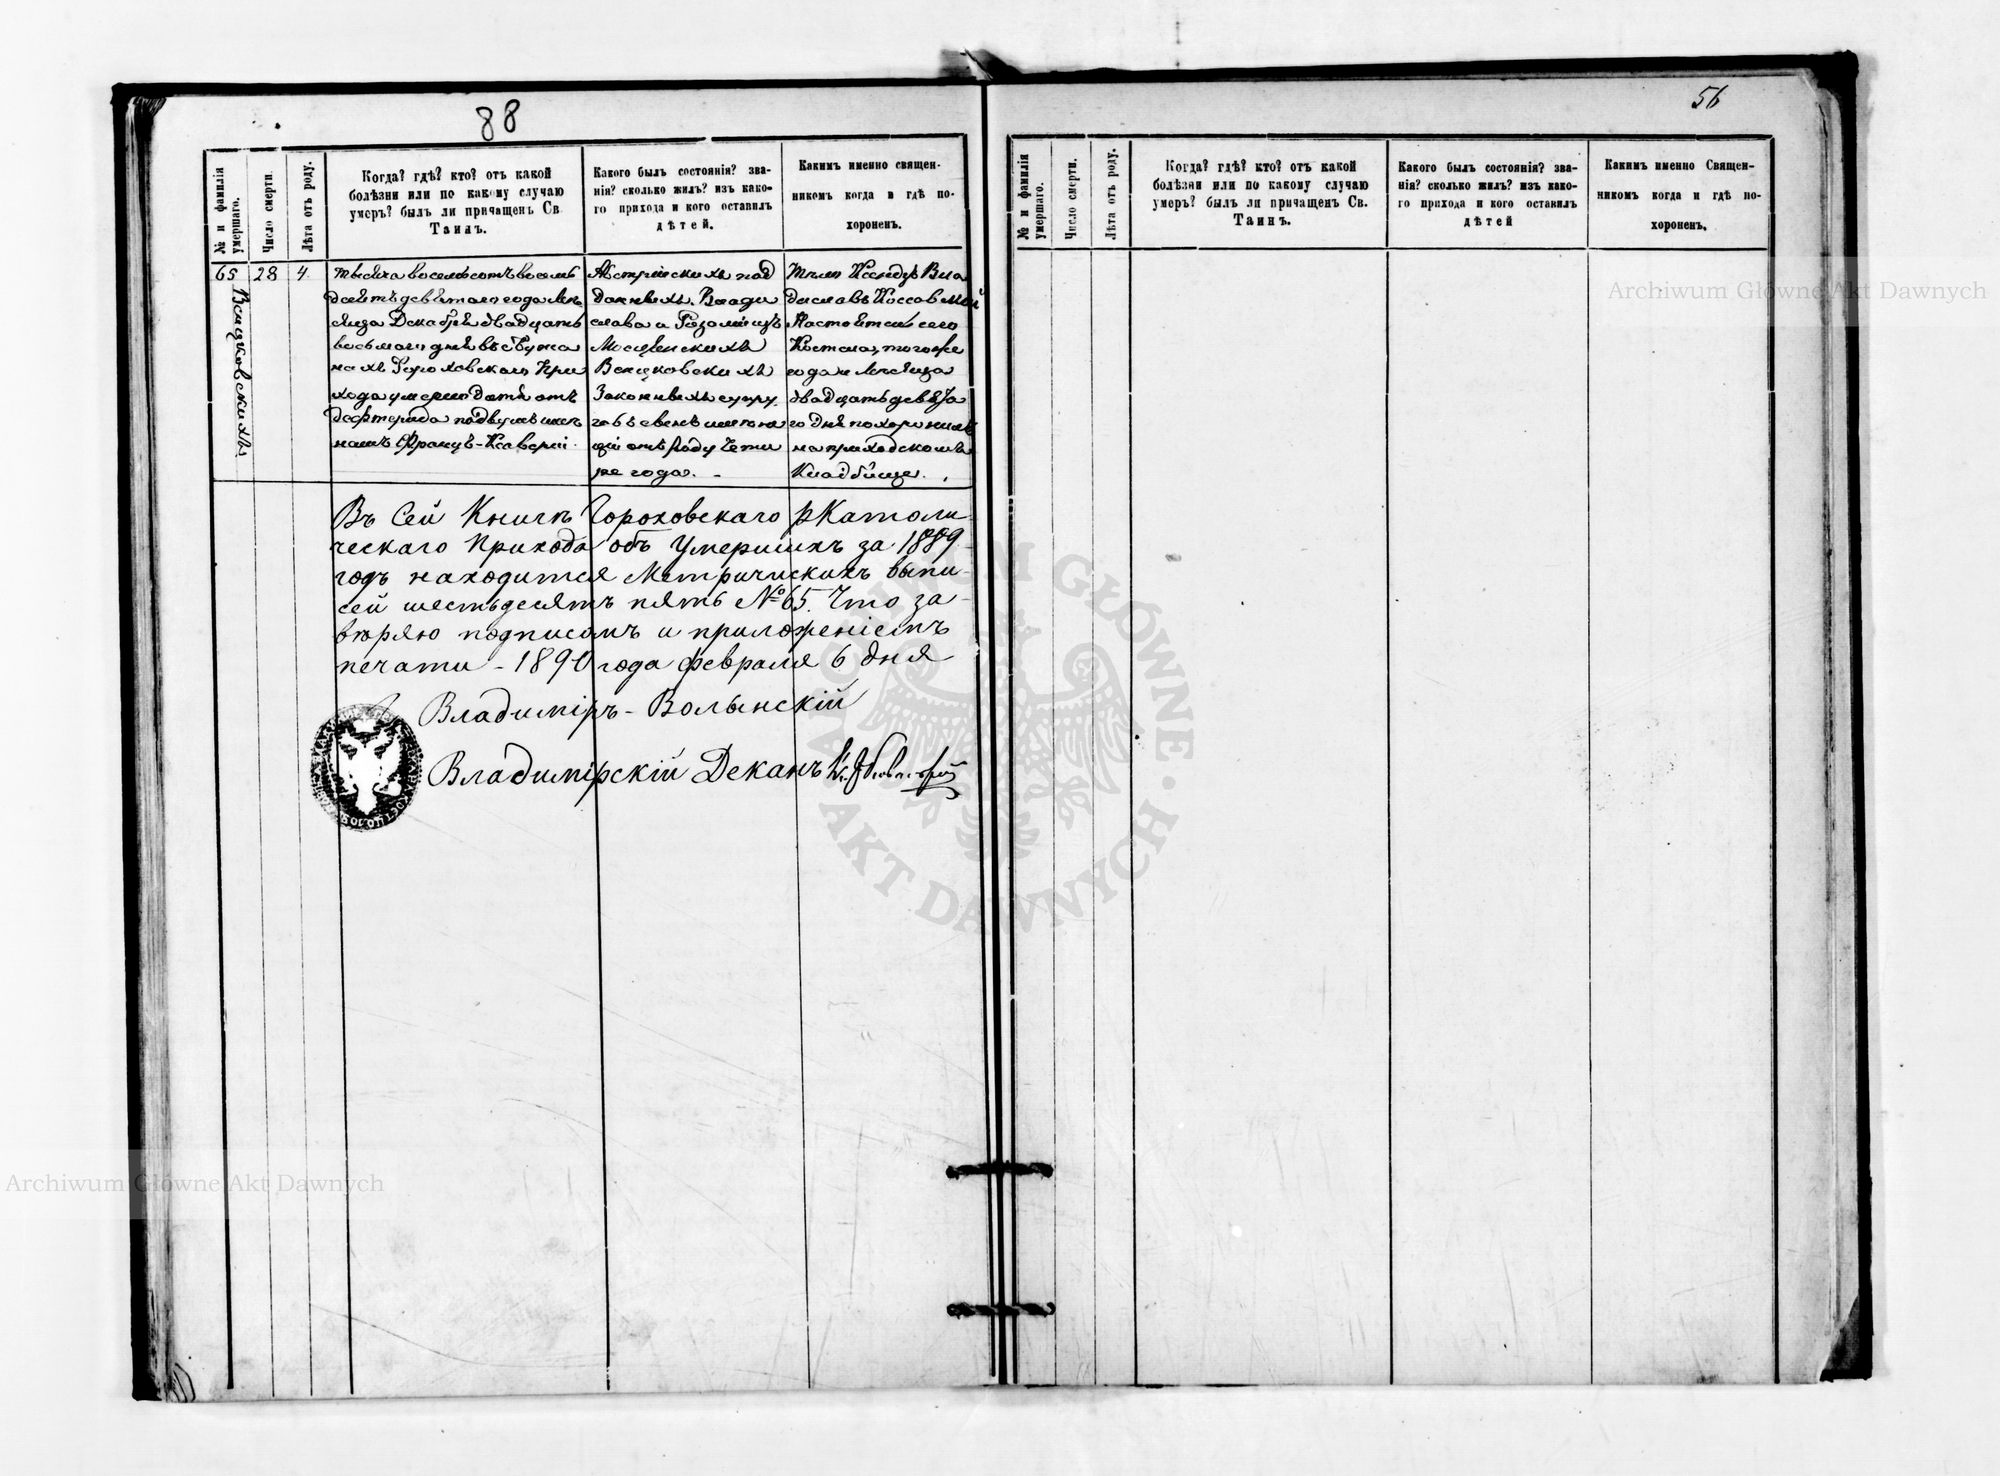 88
№ и фамилія умершаго.
Число смерти.
Лѣта отъ роду.
Когда? гдѣ? кто? отъ какой
болѣзни или по какому случаю
умеръ? былъ ли причащенъ Св.
Таинъ.
Какого былъ состоянія? зва-
нія? сколько жилъ? изъ како-
го прихода и кого оставилъ
дѣтей.
Какимъ именно священ-
никомъ когда и гдѣ по-
хороненъ.
65
28
4.
тысяча восемьсотъ восемь
десятъ девятаго года Мѣ
сяца Декабря двадцать
восьмаго дня въ
нахъ Гороховскаго При
хода умерло дитя отъ
дефтерита подвумя име
намъ Францъ-Ксаверій.
Австрійскихъ под
данныхъ Влади
слава и
Законныхъ супру
говъ сынъ имѣю
щій отъ роду четы
ре года. -
тѣло Ксендзъ Вла
диславъ Коссовскій
Настоятель сего
Костела, того же
года и Мѣсяца
двадцать девята
го дня похоронилъ
на приходскомъ
Кладбище.
Въ Сей Книгѣ Гороховскаго Р Католи-
ческаго Прихода объ Умершихъ за 1889
годъ находится Метрическихъ выпи-
сей шестьдесятъ пять №65. Что за-
вѣряю подписомъ и приложеніемъ
печати - 1890 года февраля 6 дня
Владиміръ-Волынскій
Владимірскій Деканъ Кс.
56
№ и фамилія умершаго.
Число смерти.
Лѣта отъ роду.
Когда? гдѣ? кто? отъ какой
болѣзни или по какому случаю
умеръ? былъ ли причащенъ Св.
Таинъ.
Какого былъ состоянія? зва-
нія? сколько жилъ? изъ како-
го прихода и кого оставилъ
дѣтей
Какимъ именно Священ-
никомъ когда и гдѣ по-
хороненъ.
Archiwum Główne Akt Dawnych
Archiwum Główne Akt Dawnych